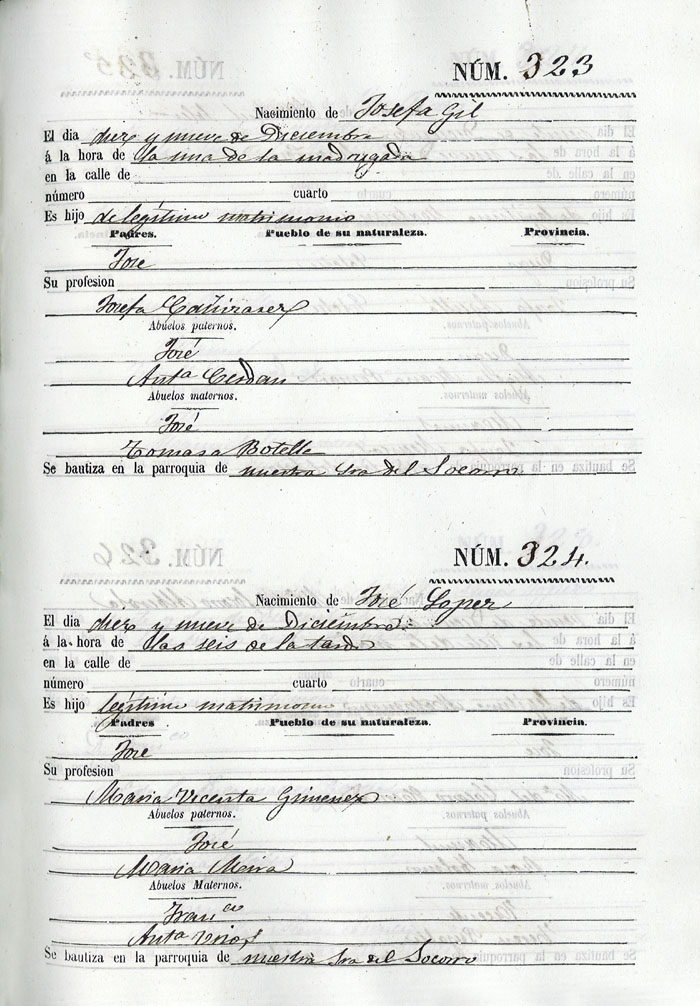 NÚM. 323
Nacimiento de Josefa Gil
El dia diez y nueve de Diciembre
á la hora de la una de la madrugada
en la calle de
número cuarto
Es hijo de legítimo matrimonio
Padres. Pueblo de su naturaleza. Provincia.
José
Su profesion
Josefa Cañizares
Abuelos paternos.
José
Anta Cerdan
Abuelos maternos.
José
Tomasa Botella
Se bautiza en la parroquia de nuestra Sra del Socorro
NÚM. 324.
Nacimiento de José Lopez
El dia diez y nueve de Diciembre
á la hora de las seis de la tarde
en la calle de
número cuarto
Es hijo legítimo matrimonio
Padres Pueblo de su naturaleza. Provincia.
José
Su profesion
Maria Vicenta Gimenez
Abuelos paternos.
José
Maria Meira
Abuelos Maternos.
Franco
Anta
Se bautiza en la parroquia de nuestra Sra del Socorro